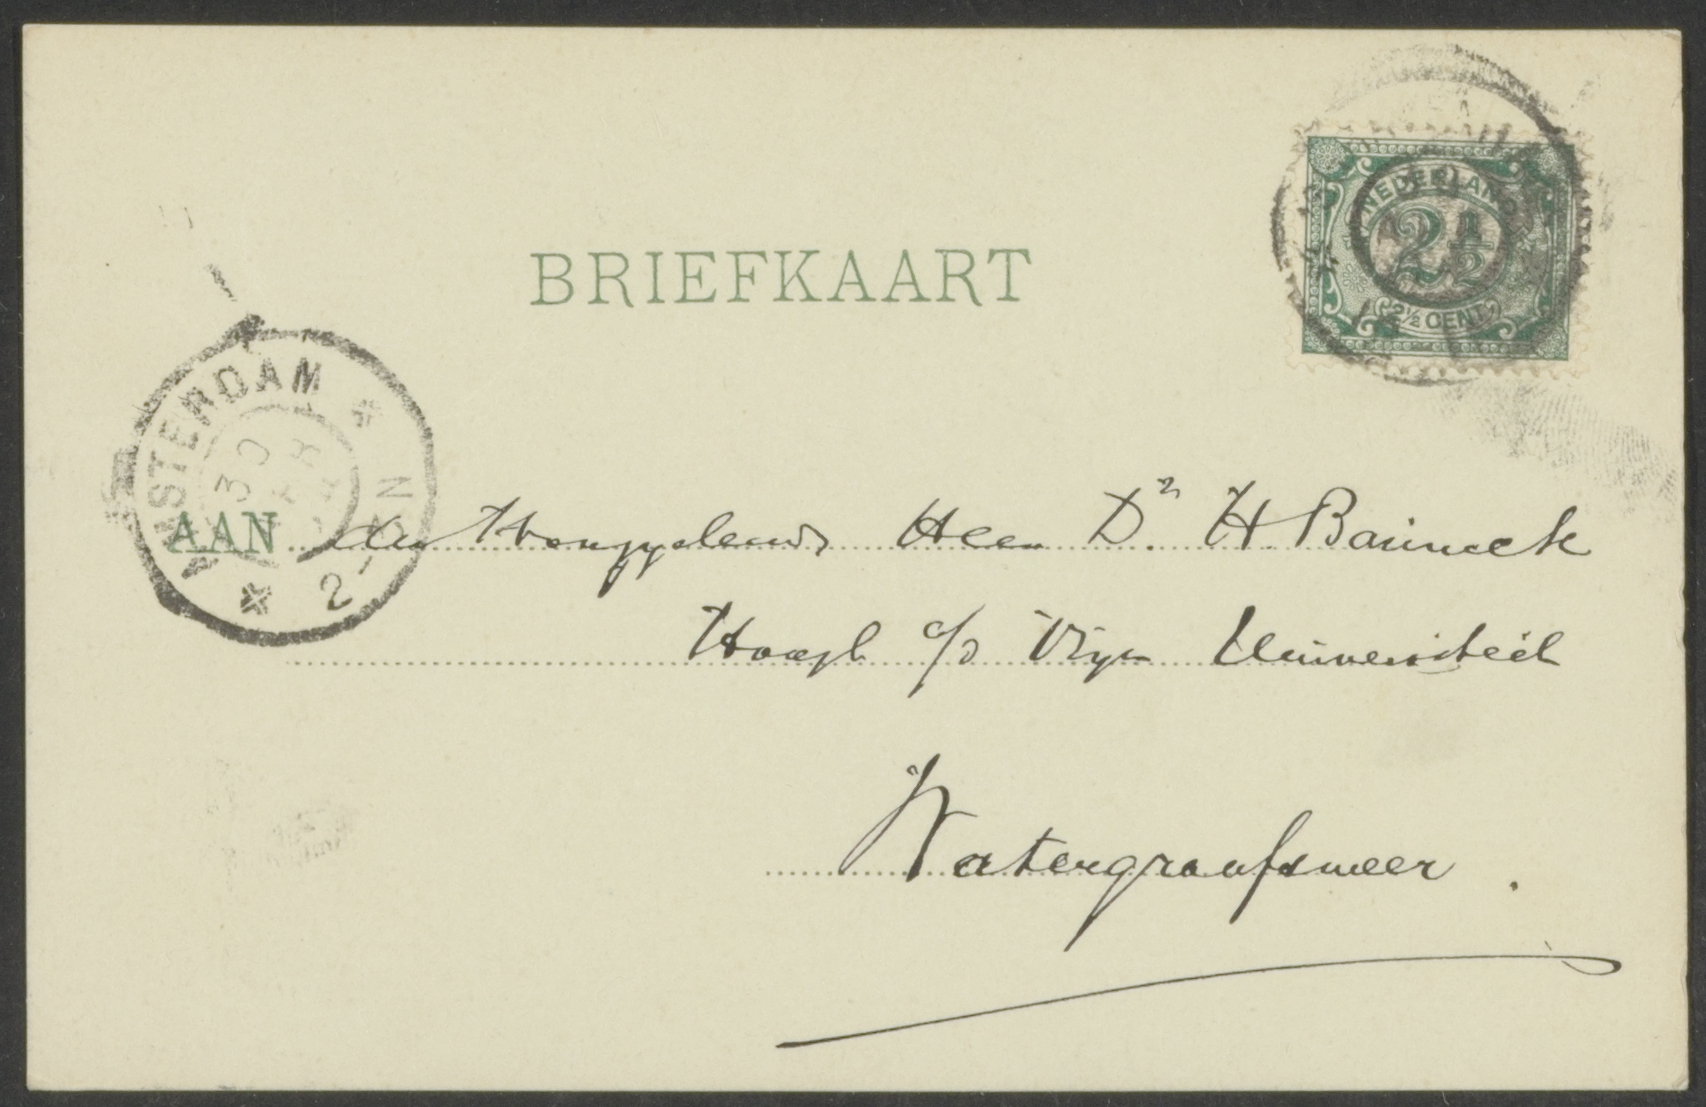 BRIEFKAART
NEDERLAND
2½
2½ CENT
AMSTERDAM
30
2-
N
AAN den Hooggeleerd Heer Dr. H. Bavinck
Hoogl a/d Vrije Universiteit
Watergraafsmeer.